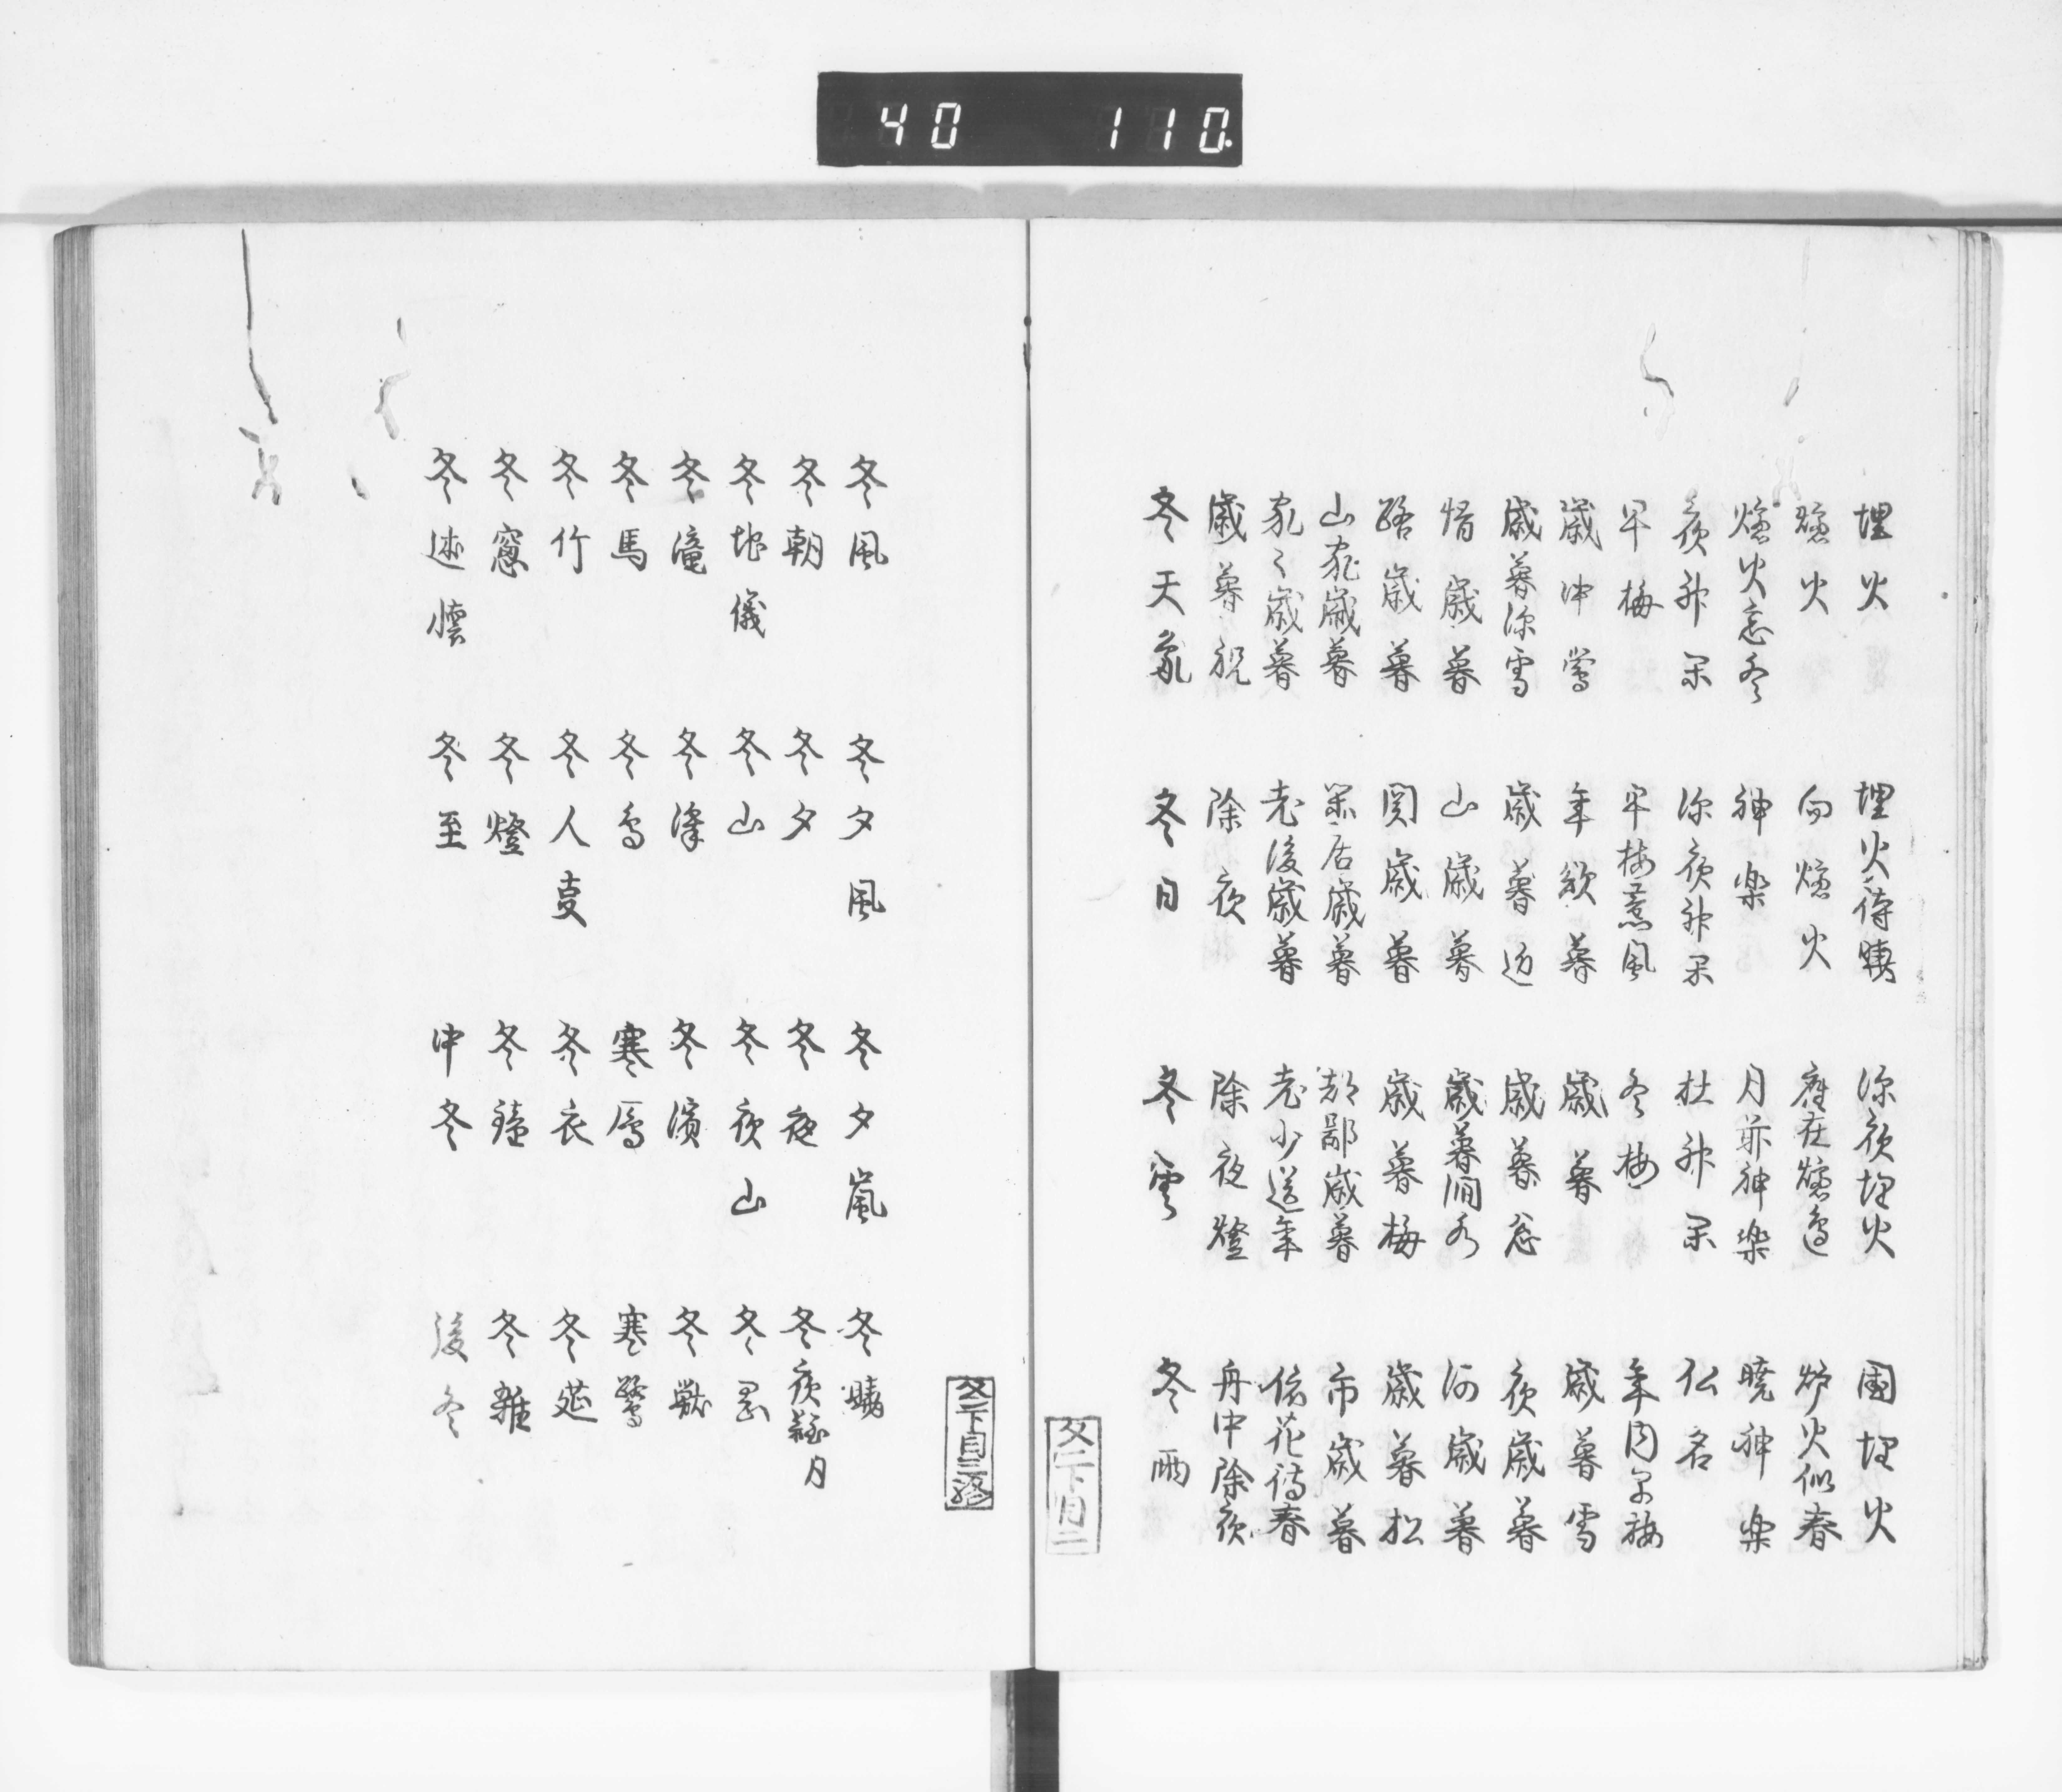 40 110
埋火 埋火待暁 深夜埋火 閨埋火
爐火 向爐火 唯在爐邊 炉火似春
爐火忘冬 神楽 月前神楽 暁神楽
夜神楽 深夜神楽 社神楽 仏名
早梅 早梅薫風 冬梅 年内早梅
歳中鶯 年欲暮 歳暮 歳暮雪
歳暮深雪 歳暮近 歳暮忩 夜歳暮
惜歳暮 山歳暮 歳暮澗水 河歳暮
路歳暮 関歳暮 歳暮梅 歳暮松
山家歳暮 閑居歳暮 都鄙歳暮 市歳暮
家々歳暮 老後歳暮 老少送年 依花待春
歳暮祝 除夜 除夜燈 舟中除夜
冬天象 冬日 冬雲 冬雨
文二下目二
文二下目三終
冬風 冬夕風 冬夕嵐 冬暁
冬朝 冬夕 冬夜 冬夜難月
冬地儀 冬山 冬夜山 冬罡
冬滝 冬澤 冬濱 冬獣
冬馬 冬鳥 寒雁 寒鷺
冬竹 冬人事 冬衣 冬莚
冬窓 冬燈 冬鐘 冬雑
冬述懐 冬至 中冬 後冬